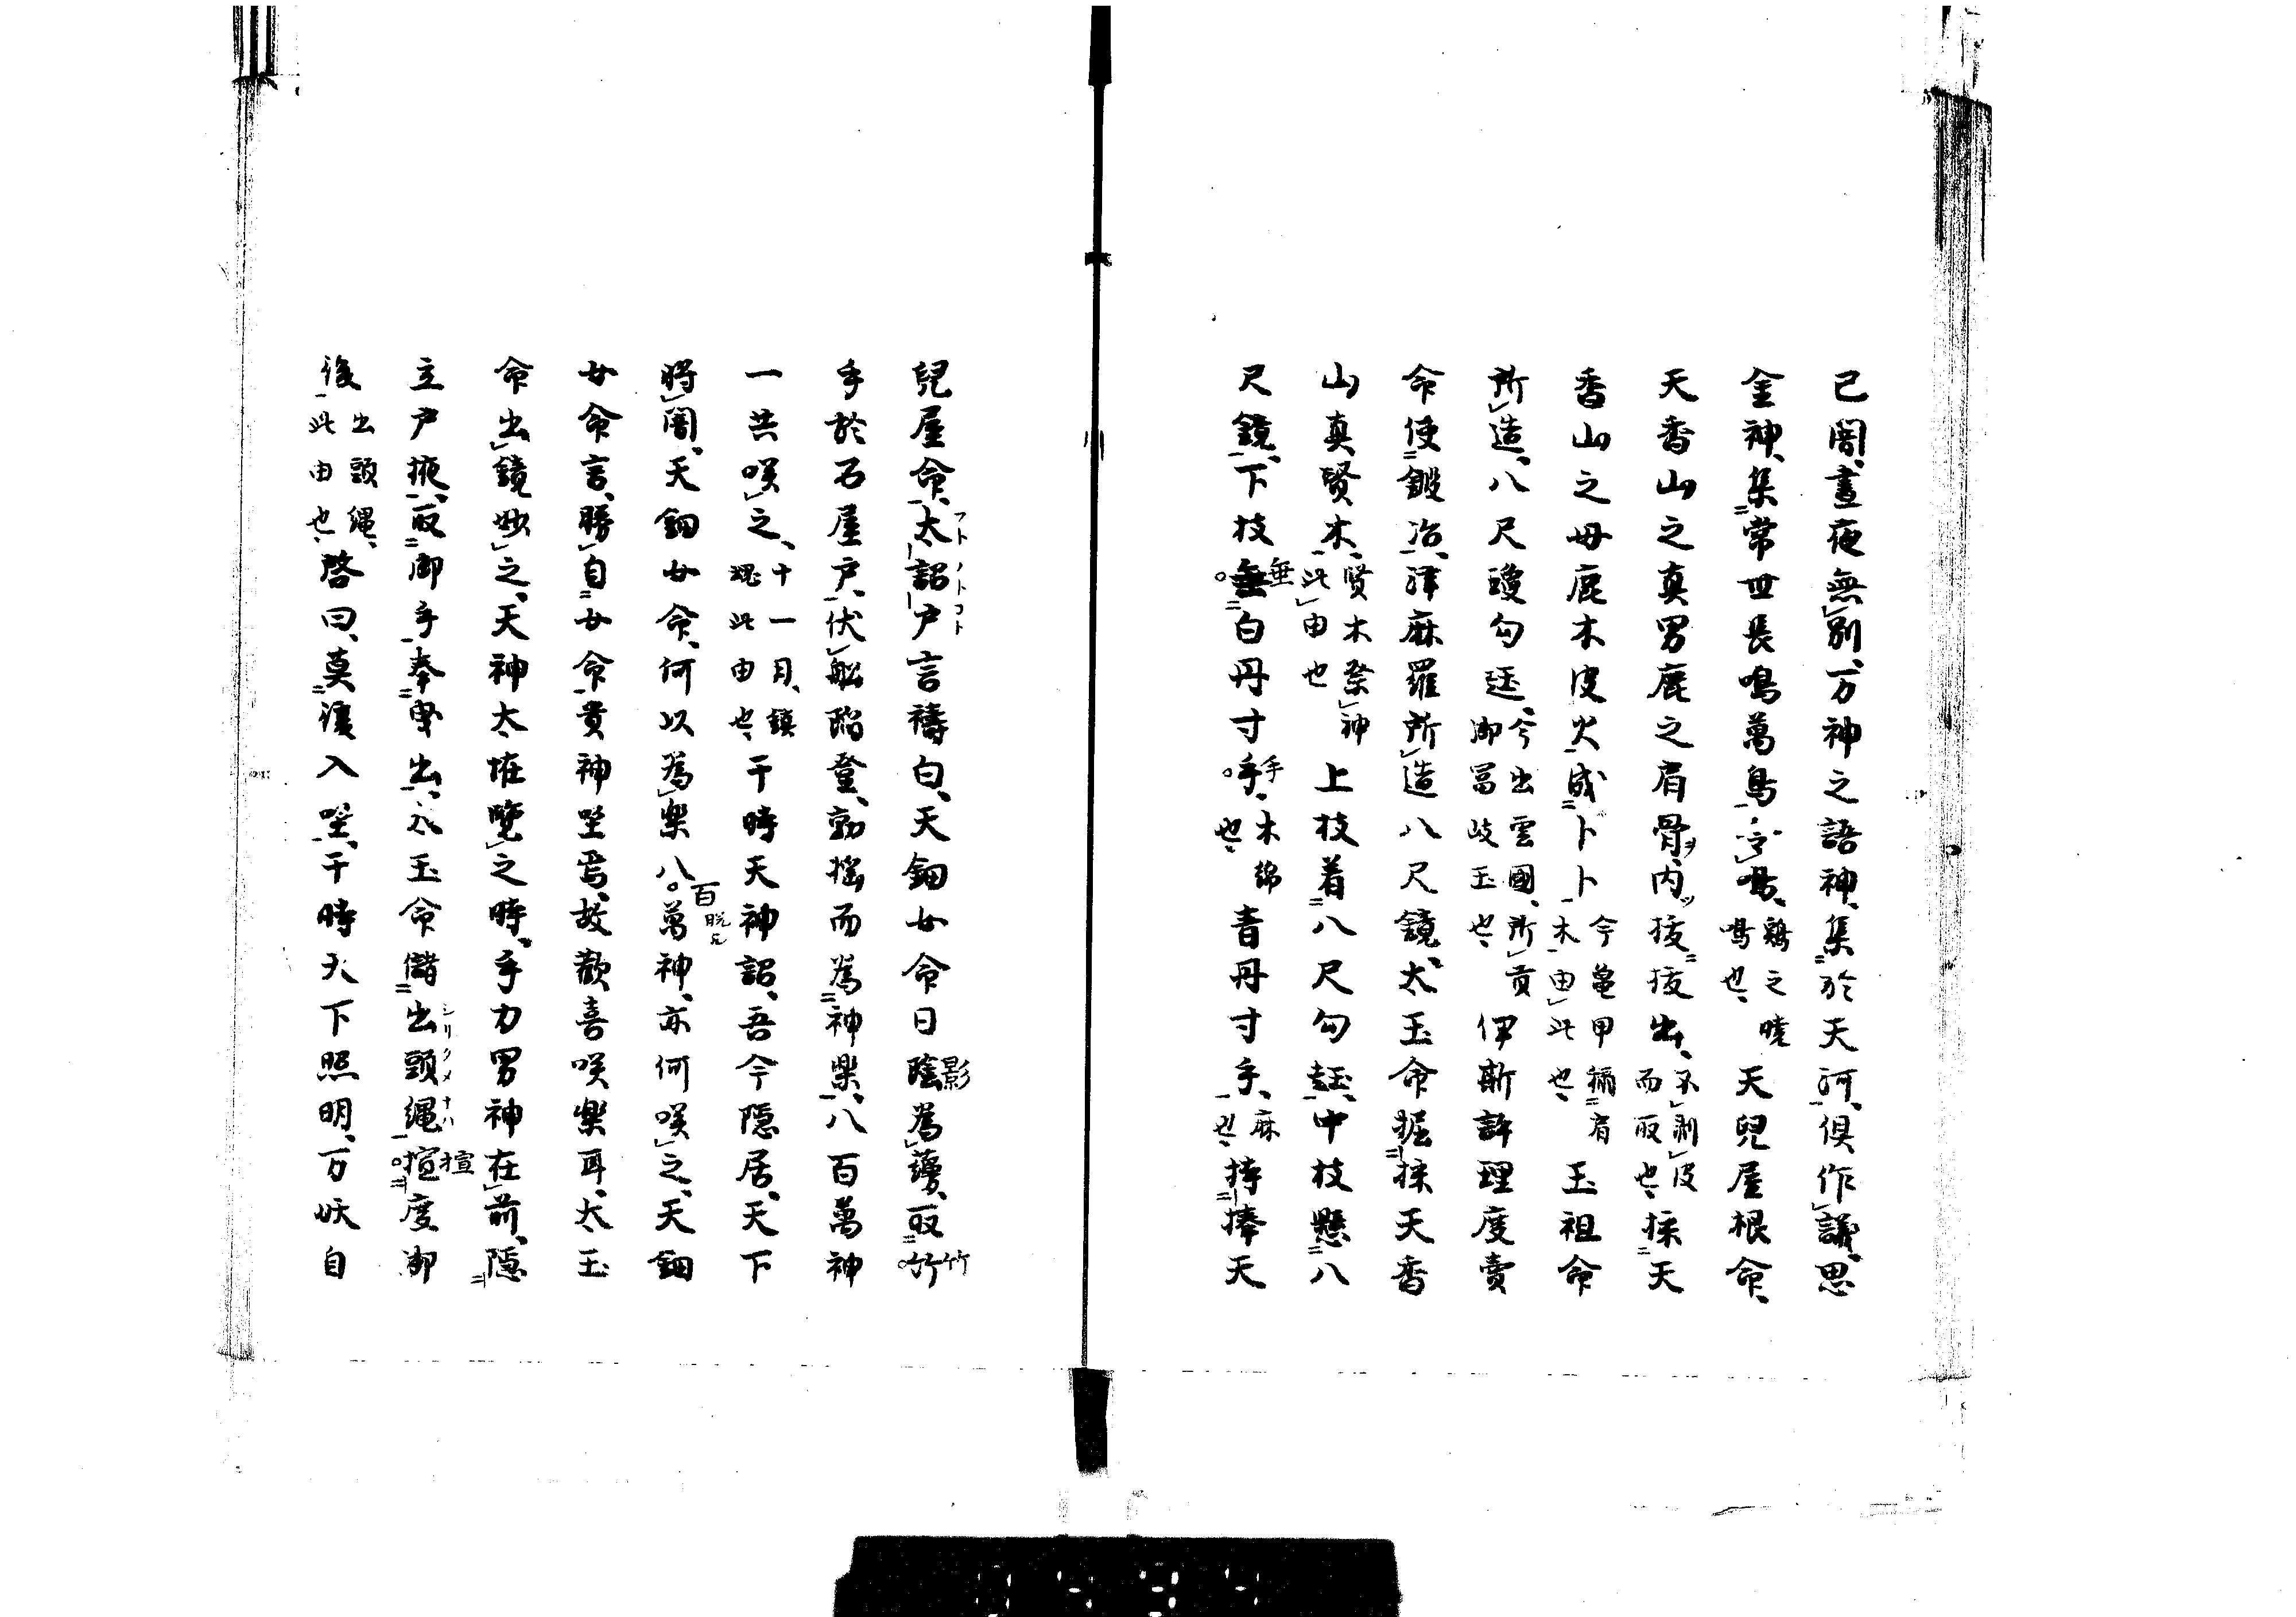 已闇、晝夜無別、万神之語神、集於天河、俱作議、思
金神、集常世長鳴萬鳥、令鳴、鷄之曉鳴也、天兒屋根命、
天香山之真男鹿之肩骨ヲ、内ツ抜抜出、不剥皮而取也、採天
香山之母鹿木皮火成卜卜、今亀甲稱肩木由此也、玉祖命
所造、八尺瓊勾𤤴、今出雲國、所貢御冨岐玉也、伊斯許理度賣
命使鍛冶、麻羅所造八尺鏡、太玉命掘採天香
山真賢木、賢木祭神此由也上枝着八尺勾𤤴、中枝懸八
尺鏡、下枝垂垂白丹寸手手、木綿也、青丹寸手、麻也、持捧天
兒屋命、太詔戸言禱白、天鈿女命日蔭影為蘰、取竹竹
フトノトコト
手於石屋戸、伏船蹈登、動搖而為神樂、八百萬神
一共咲之、十一月、鎮魂此由也、于時天神詔、吾今隱居、天下
將闇、天鈿女命、何以為樂八百脱乇萬神、亦何咲之、天鈿
女命言、勝自女命貴神坐焉、故歡喜咲樂耳、太玉
命出鏡妙之、天神太恠覽之時、手力男神在前、隱
立戸掖、取御手奉曳出、太玉命儲出頭繩揎揎度御
シリクメナハ
後出頭繩、此由也、啓曰、莫還入坐、于時天下照明、万妖自